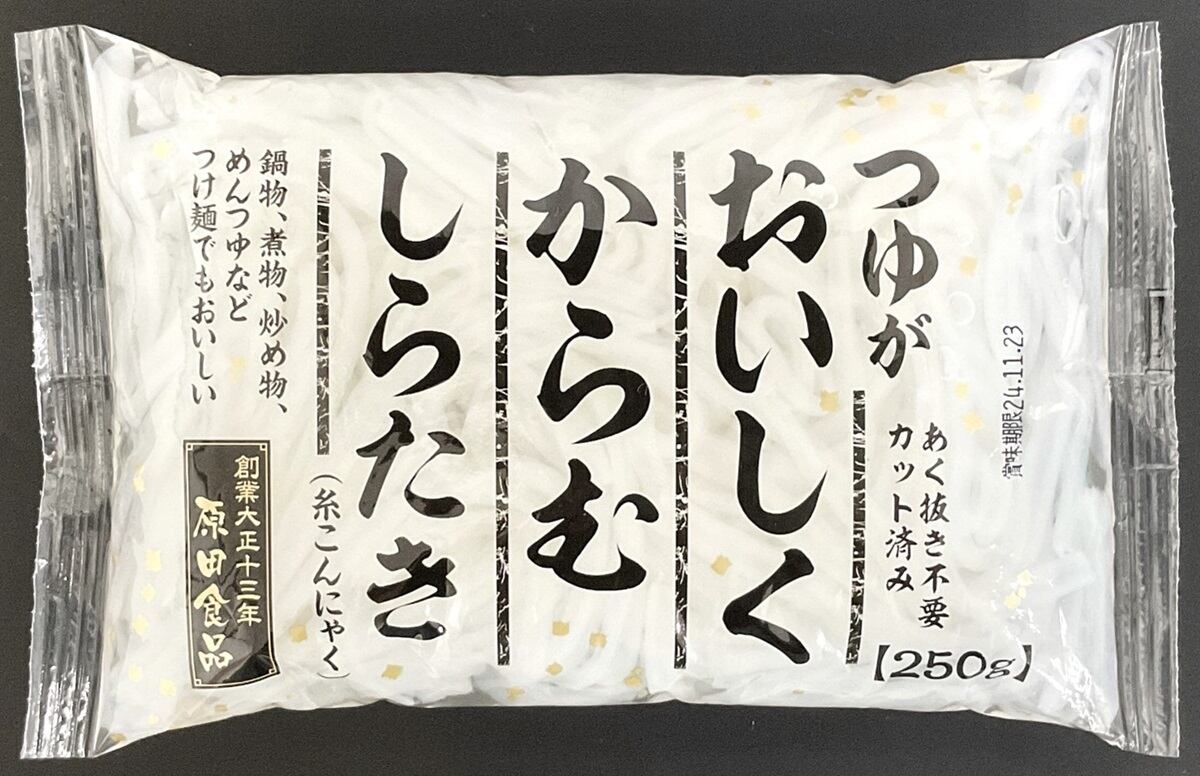 賞味期限24.11.23
つゆが
おいしく
からむ
しらたき
(糸こんにゃく)
あく抜き不要
カット済み
【250g】
鍋物、煮物、炒め物、
めんつゆなど
つけ麺でもおいしい
創業大正十三年
原田食品